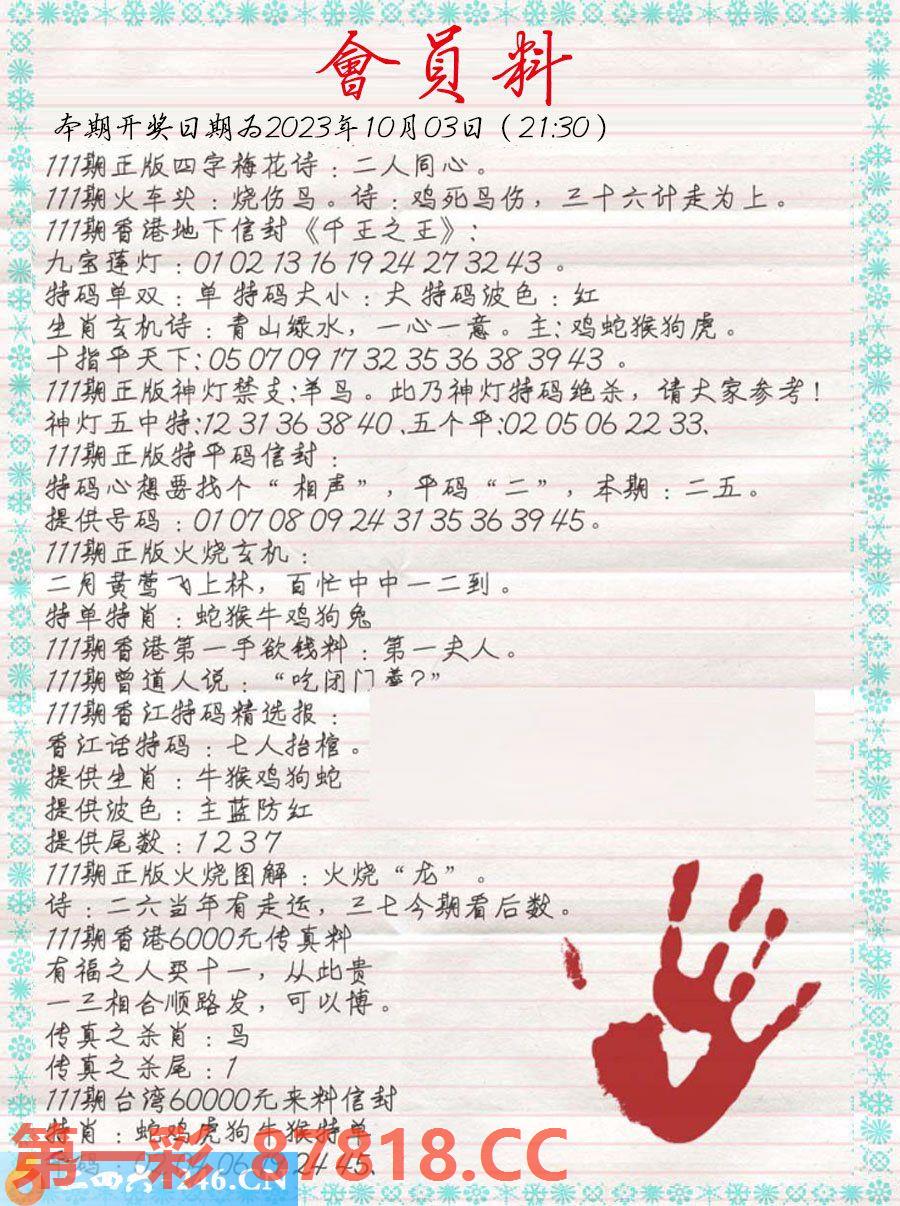 會員料
本期开奖日期为2023年10月03日（21:30）
111期正版四字梅花诗：二人同心。
111期火车头：烧伤鸟。诗：鸡死马伤，三十六计走为上。
111期香港地下信封《千王之王》：
九宝莲灯：01 02 13 16 19 24 27 32 43 。
特码单双：单 特码大小：大 特码波色：红
生肖玄机诗：青山绿水，一心一意。主：鸡蛇猴狗虎。
十指平天下：05 07 09 17 32 35 36 38 39 43 。
111期正版神灯禁支：羊鸟。此乃神灯特码绝杀，请大家参考！
神灯五中特：12 31 36 38 40、五个平：02 05 06 22 33、
111期正版特平码信封：
特码心想要找个“相声”，平码“二”，本期：二五。
提供号码：01 07 08 09 24 31 35 36 39 45。
111期正版火烧玄机：
二月黄莺飞上林，百忙中中一二到。
特单特肖：蛇猴牛鸡狗兔
111期香港第一手欲钱料：第一夫人。
111期曾道人说：“吃闭门羹？”
111期香江特码精选报：
香江话特码：七人抬棺。
提供生肖：牛猴鸡狗蛇
提供波色：主蓝防红
提供尾数：1 2 3 7
111期正版火烧图解：火烧“龙”。
诗：二六当年有走运，三七今期看后数。
111期香港6000元传真料
有福之人买十一，从此贵
一三相合顺路发，可以博。
传真之杀肖：鸟
传真之杀尾：1
111期台湾60000元来料信封
特肖：蛇鸡虎狗牛猴特单
24 45、
第一彩 87818.CC
二四六 246.CN